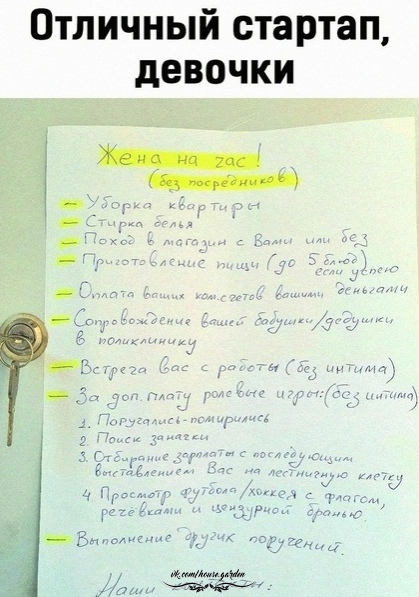 Отличный стартап,
девочки
Жена на час!
(без посредников)
— Уборка квартиры
— Стирка белья
— Поход в магазин с Вами или без
— Приготовление пищи (до 5 блюд)
если успею
— Оплата ваших ком.счетов вашими деньгами
— Сопровождение вашей бабушки/дедушки
в поликлинику
— Встреча вас с работы (без интима)
— За доп. плату ролевые игры: (без интима)
1. Поругались-помирились
2. Поиск заначки
3. Отбирание зарплаты с последующим
выставлением Вас на лестничную клетку
4 Просмотр футбола/хоккея с флагом,
речёвками и цензурной бранью.
— Выполнение других поручений.
vk.com/house.garden
Наши